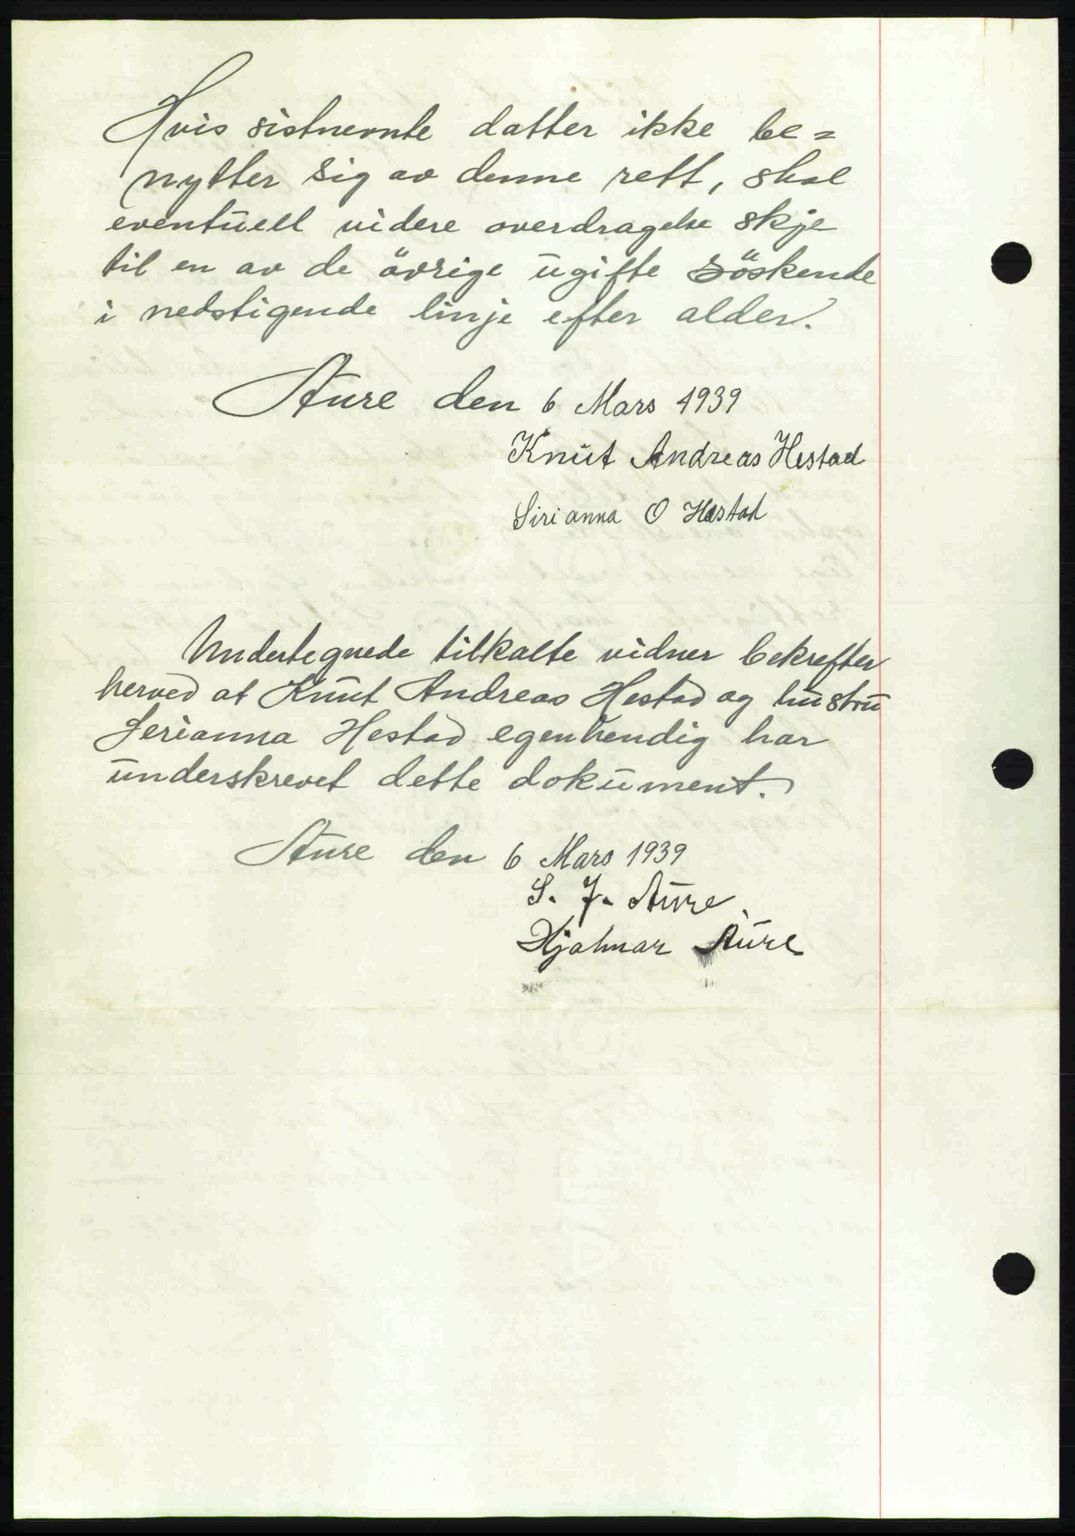 Hvis sistnevnte datter ikke be=
nytter sig av denne rett, skal
eventuell videre overdragelse skje
til en av de övrige ugifte söskende
i nedstigende linje efter alder.
Aure den 6 Mars 1939
Knut Andreas Hestad
Sirianna O Hestad
Undertegnede tilkalte vidner bekrefter
herved at Knut Andreas Hestad og hustru
Serianna Hestad egenhendig har
underskrevet dette dokument.
Aure den 6 Mars 1939
S. J. Aure.
Hjalmar Aure